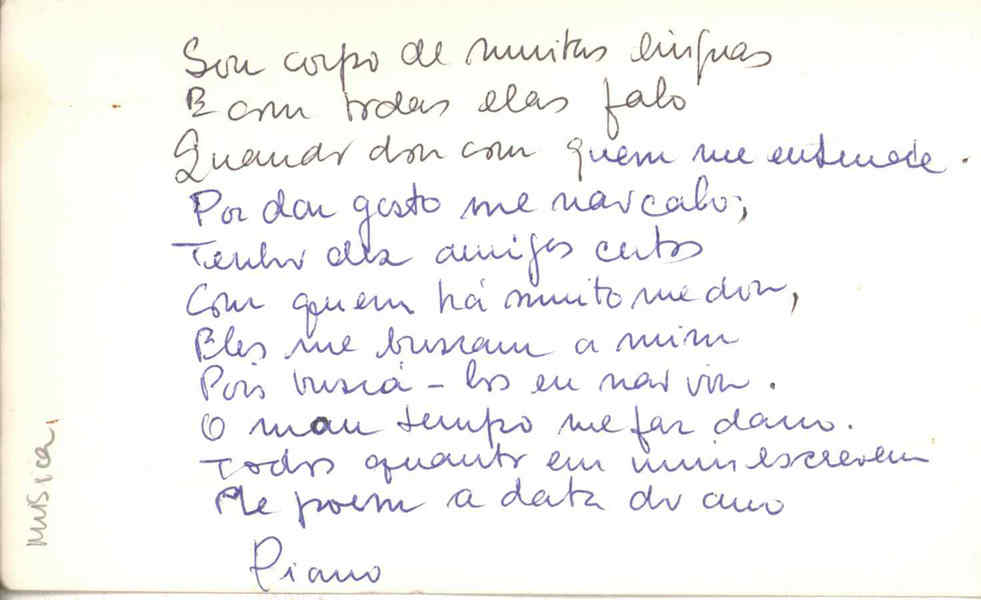 Sou corpo de muitas linguas
E com todas elas falo
Quando dou com quem me entende.
Por dar gosto me não calo;
Tenho dez amigos certos
Com quem há muito me dou,
Eles me buscam a mim
Pois buscá-los eu não vou.
O mau tempo me faz dano.
Todos quanto em mim escrevem
Me poem a data do ano
Piano
Musica,